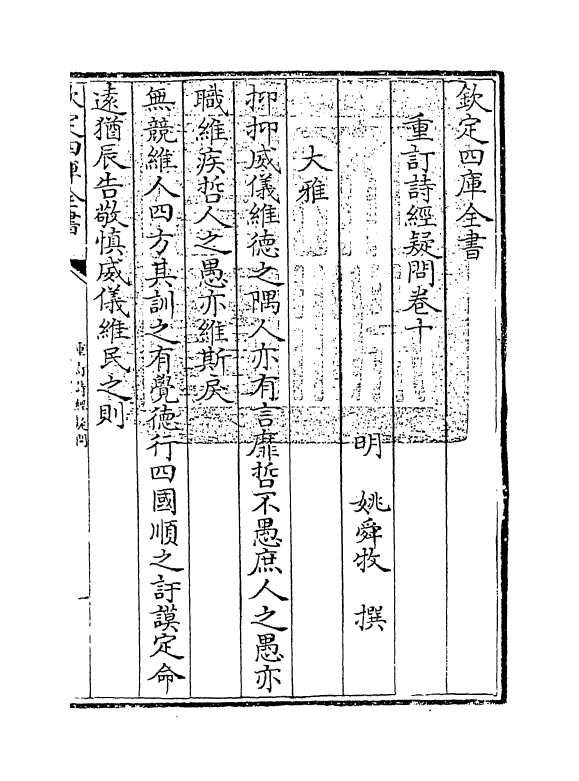 欽定四庫全書
重訂詩經疑問卷十
明　姚舜牧　撰
大雅
抑抑威儀維德之隅人亦有言靡哲不愚庶人之愚亦
職維疾哲人之愚亦維斯戾
無競維人四方其訓之有覺德行四國順之訏謨定命
遠猶辰告敬慎威儀維民之則
欽定四庫全書
重訂詩經疑問
一